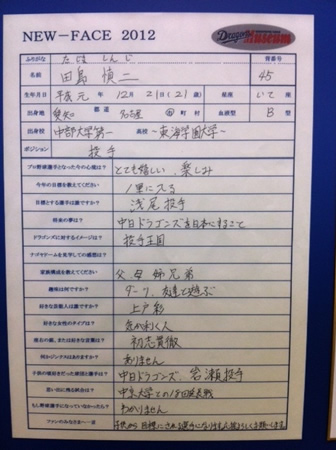 NEW-FACE 2012
Dragons Museum
ふりがな たじま しんじ 背番号
名前 田島 慎二 45
生年月日 平成元年 12月 21日(21歳) 星座 いて座
出身地 愛知 都道 名古屋 市 町村 血液型 B型
出身校 中部大学第一 高校 ~東海学園大学~
ポジション 投手
プロ野球選手となった今の心境は? とても嬉しい、楽しみ
今年の目標を教えてください 1軍に入る
目標とする選手は誰ですか? 浅尾投手
将来の夢は? 中日ドラゴンズを日本一にすること
ドラゴンズに対するイメージは? 投手王国
ナゴヤドームを見学しての感想は?
家族構成を教えてください 父母姉兄弟
趣味は何ですか? ダーツ、友達と遊ぶ
好きな芸能人は誰ですか? 上戸彩
好きな女性のタイプは? 気がきく人
座右の銘、または好きな言葉は? 初志貫徹
何かジンクスはありますか? ありません
子供の頃好きだった球団と選手は? 中日ドラゴンズ、岩瀬投手
思い出に残る試合は? 中京大学との18回延長戦
もし野球選手になっていなかったら? わかりません
ファンのみなさまへ一言 子供から目標にされる選手になりますので応援よろしくお願いします